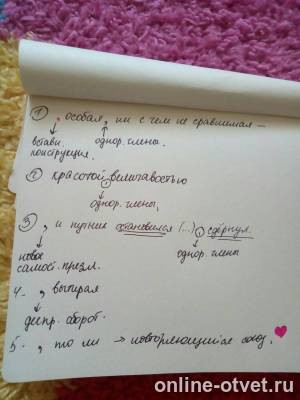 1 , особая, ни с чем не сравнимая –
встави. однор. члены.
конструкция.
2 красотой, величавостью
однор. члены,
3 , и путник остановился (...), сдёрнул
новое однор. члены
самост. предл.
4 - , вытирая
деепр. оборот.
5. , то ли → повторяющийся союз.
online-otvet.ru